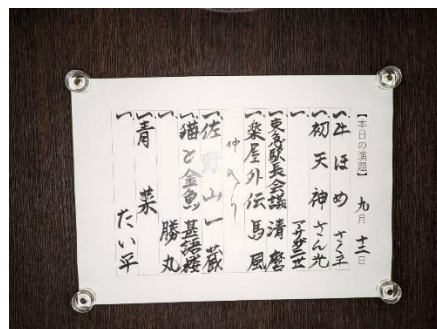 【本日の演題】 九月 十二日
一、牛ほめ さく平
一、初天神 さん光
一、
一、東急駅長会議 清麿
一、楽屋外伝 馬風
仲入り
一、佐野山 一蔵
一、猫と金魚 甚語楼
一、 勝丸
一、青菜 たい平